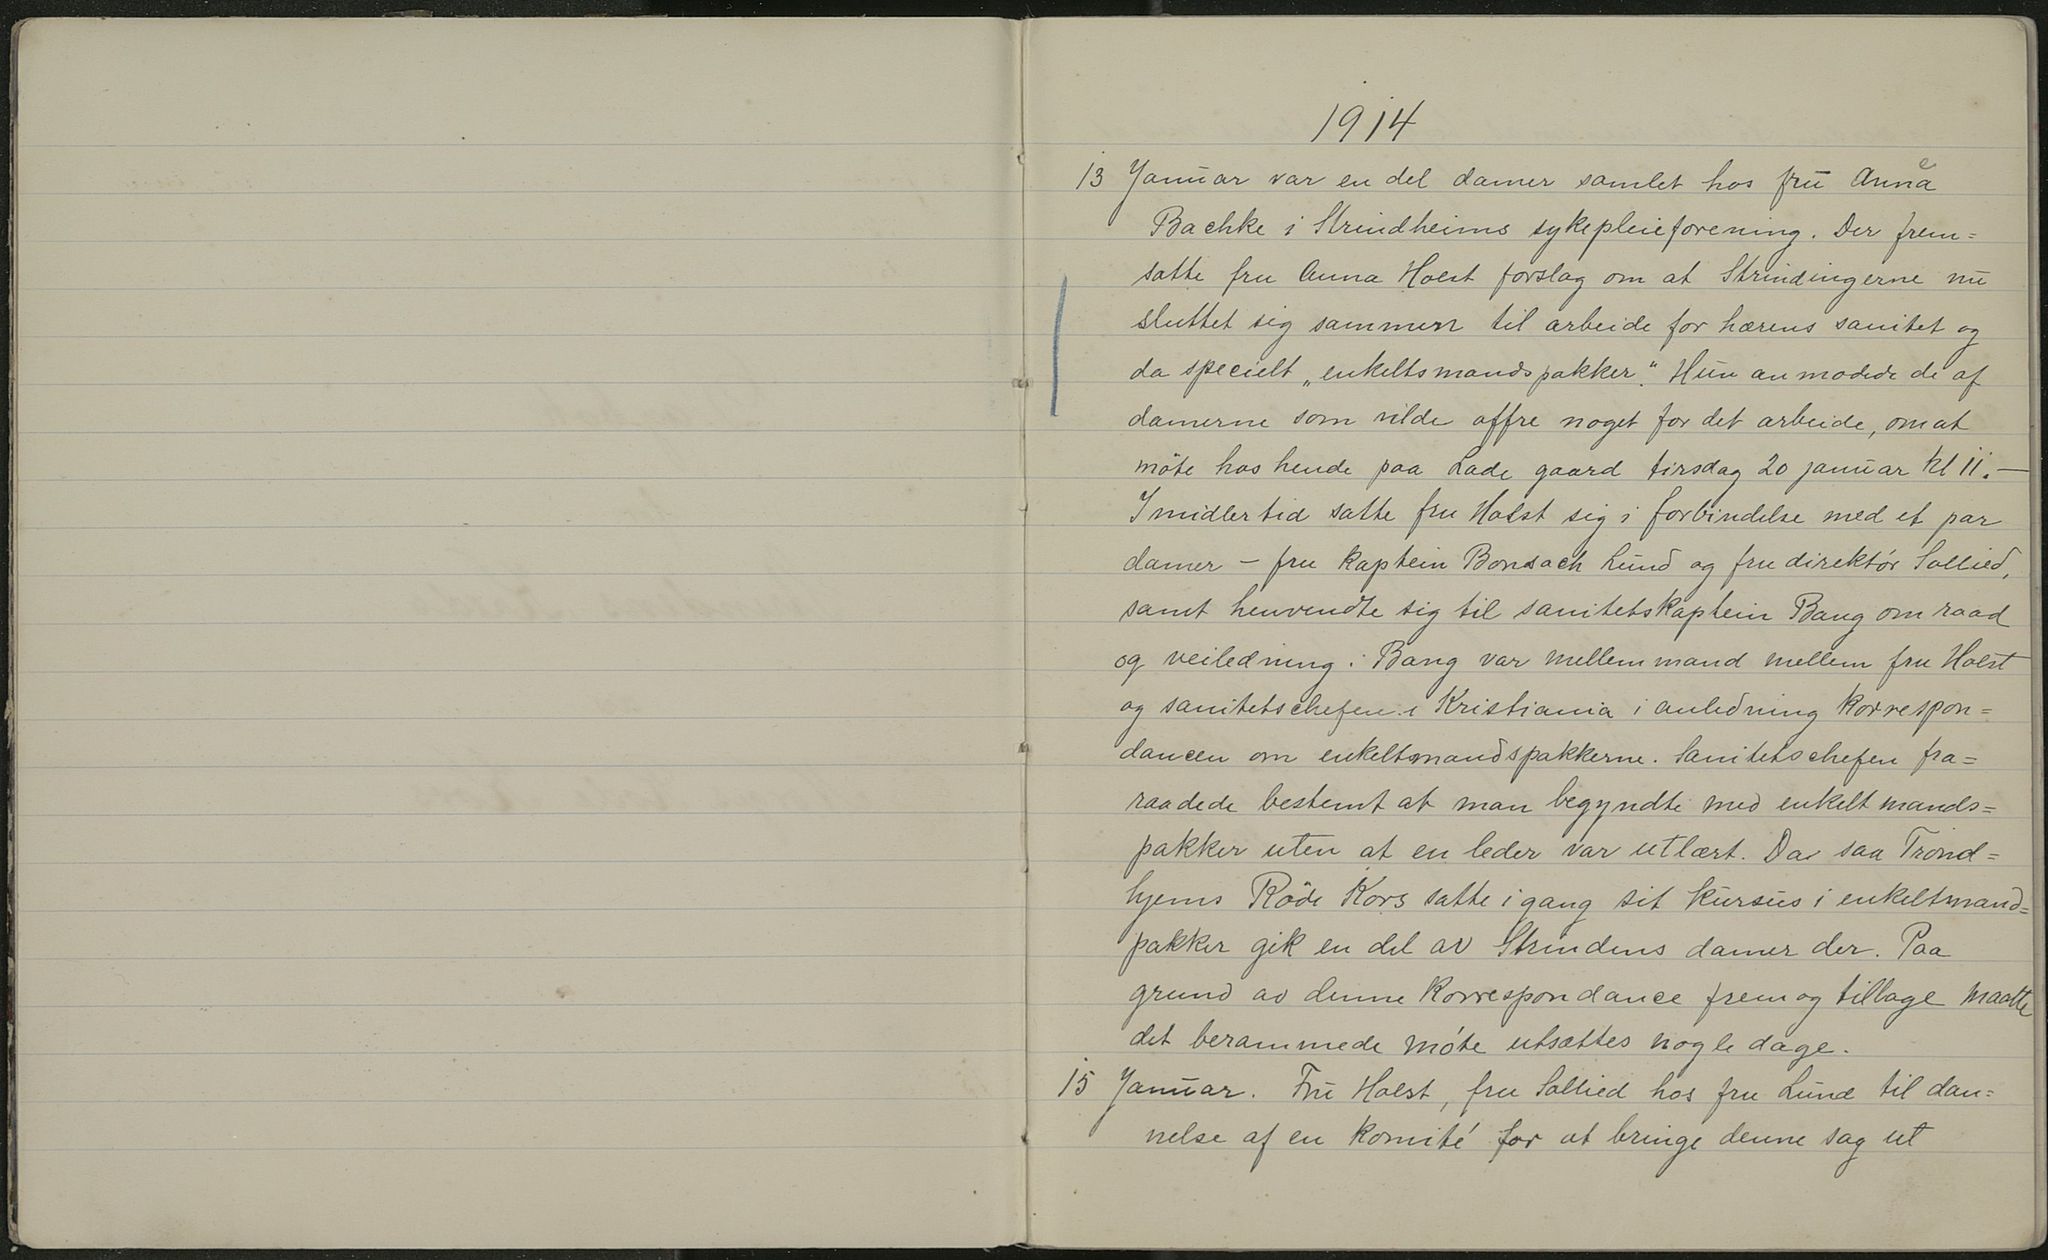 1914
13 Januar var en del damer samlet hos fru Anna e
Bachke i Strindheims sykepleieforening. Der frem=
satte fru Anna Holst forslag om at Strindingerne nu
sluttet sig sammen til arbeide for hærens sanitet og
da specielt „enkeltsmandspakker." Hun anmodede de af
damerne som vilde offre noget for det arbeide, om at
möte hos hende paa Lade gaard tirsdag 20 januar kl 11. —
Imidlertid satte fru Holst sig i forbindelse med et par
damer – fru kaptein Bonsach Lund og fru direktör Sollied,
samt henvendte sig til sanitetskaptein Bang om raad
og veiledning. Bang var mellemmand mellem fru Holst
og sanitetschefen i Kristiania i anledning korrespon=
dancen om enkeltsmandspakkerne. Sanitetschefen fra=
raadede bestemt at man begyndte med enkeltmands=
pakker uten at en leder var utlært. Da saa Trond=
hjems Röde Kors satte igang sit kursus i enkeltmand=
pakker gik en del av Strindens damer der. Paa
grund av denne korrespondance frem og tilbage maatte
det berammede möte utsættes nogle dage.
15 Januar. Fru Holst, fru Sollied hos fru Lund til dan=
nelse af en komité for at bringe denne sag ut